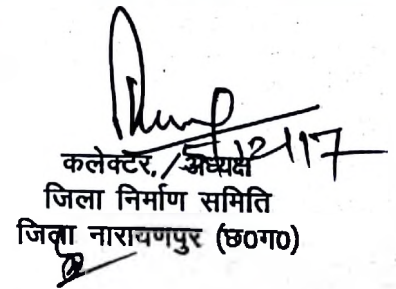 5/12/17
कलेक्टर, / अध्यक्ष
जिला निर्माण समिति
जिला नारायणपुर (छ०ग०)